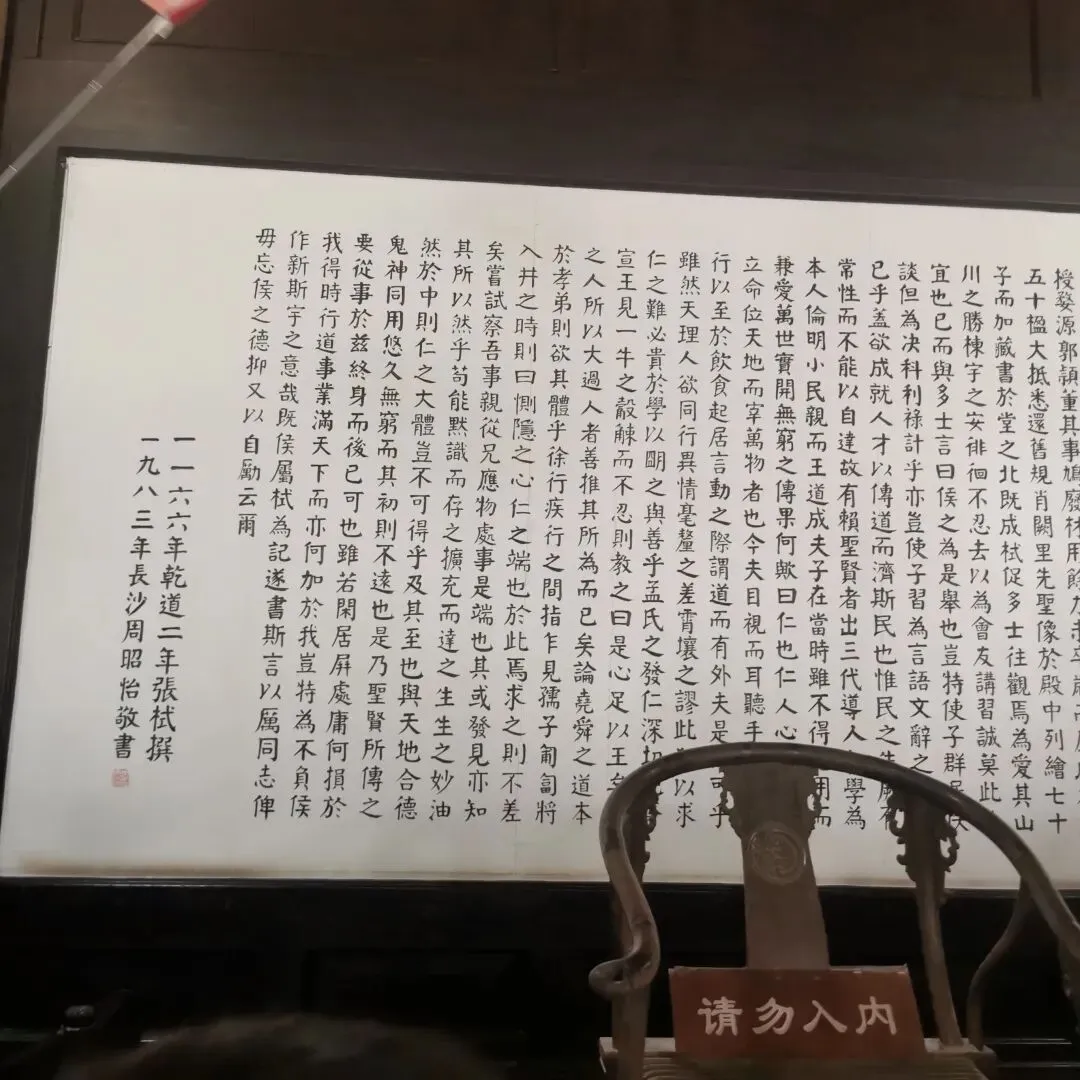 授婺源郭頴董其事鳩廢材用餘
五十楹大抵悉還舊規肖闕里先聖像於殿中列繪七十
子而加藏書於堂之北既成栻促多士往觀焉為愛其山
川之勝棟宇之安徘徊不忍去以為會友講習誠莫此
宜也已而與多士言曰侯之為是舉也豈特使子群居佚
談但為决科利祿計乎亦豈使子習為言語文辭之
已乎蓋欲成就人才以傳道而濟斯民也惟民之生厥有
常性而不能以自達故有賴聖賢者出三代導人學為
本人倫明小民親而王道成夫子在當時雖不得用而
兼愛萬世實開無窮之傳果何歟曰仁也仁人心
立命位天地而宰萬物者也今夫目視而耳聽手
行以至於飲食起居言動之際謂道而有外夫是可乎
雖然天理人欲同行異情毫釐之差霄壤之謬此以求
仁之難必貴於學以朙之與善乎孟氏之發仁深切
宣王見一牛之觳觫而不忍則教之曰是心足以王矣
之人所以大過人者善推其所為而已矣論堯舜之道本
於孝弟則欲其體乎徐行疾行之間指乍見孺子匍匐將
入井之時則曰惻隱之心仁之端也於此焉求之則不差
矣嘗試察吾事親從兄應物處事是端也其或發見亦知
其所以然乎苟能默識而存之擴充而達之生生之妙油
然於中則仁之大體豈不可得乎及其至也與天地合德
鬼神同用悠久無窮而其初則不遠也是乃聖賢所傳之
要從事於茲終身而後已可也雖若閑居屏處庸何損於
我得時行道事業滿天下而亦何加於我豈特為不負侯
作新斯宇之意哉既侯屬栻為記遂書斯言以厲同志俾
毋忘侯之德抑又以自勵云爾
一一六六年乾道二年張栻撰
一九八三年長沙周昭怡敬書
请勿入内